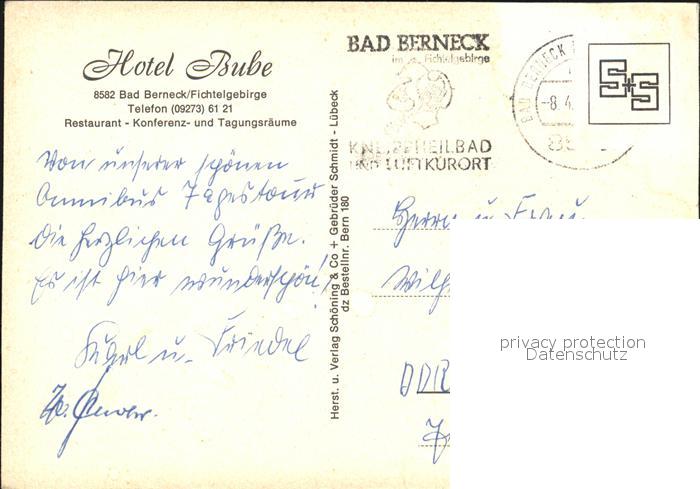 Hotel Bube
8582 Bad Berneck/Fichtelgebirge
Telefon (09273) 61 21
Restaurant - Konferenz- und Tagungsräume
BAD BERNECK
im Fichtelgebirge
KNEIPPHEILBAD
UND LUFTKURORT
BAD BERNECK
-8.4.
S+S
Von unserer schönen
Omnibus Tagestour
die herzlichen Grüße.
Es ist hier wunderschön!
u. Friedel
Herst. u. Verlag Schöning & Co + Gebrüder Schmidt - Lübeck
dz Bestellnr. Bern 180
Herrn u. Frau
Wilh
DDR
privacy protection
Datenschutz